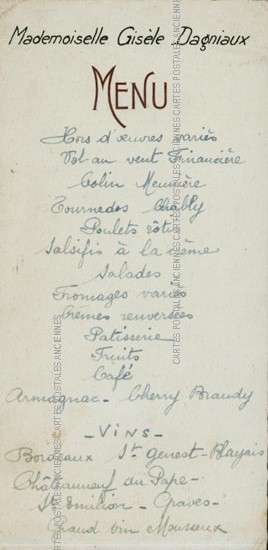 Mademoiselle Gisèle Dagniaux
MENU
Hors d'œuvres variés
Vol au vent Financière
Colin Meunière
Tournedos Chably
Poulets rôtis
Salsifis à la crème
Salades
Fromages variés
Crèmes renversées
Patisserie
Fruits
Café
Armagnac - Cherry Brandy
- Vins -
Bordeaux St Genest - Blayais
Châteauneuf du Pape -
St Emilion - Graves -
Grand vin Mousseux
CARTES POSTALES ANCIENNES
CARTES POSTALES ANCIENNES CARTES POSTALES ANCIENNES